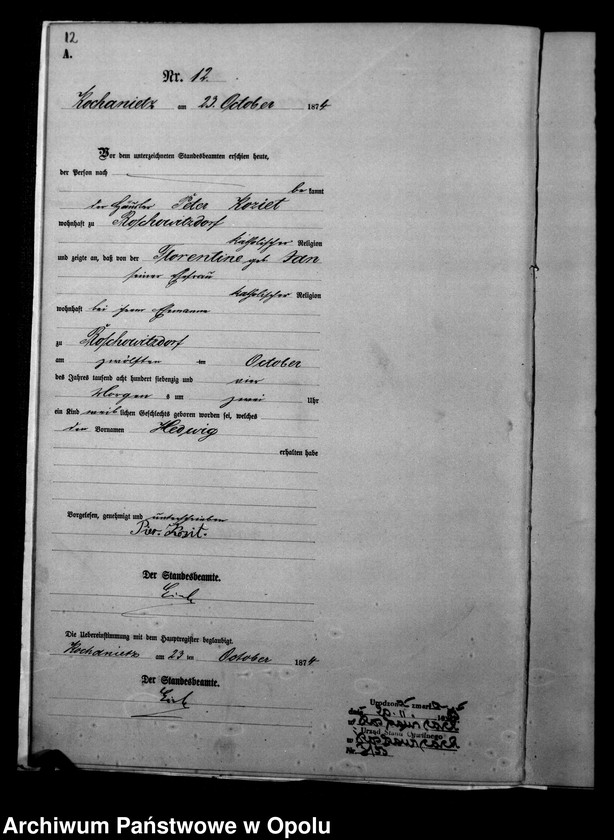 12
A.
Nr. 12
Kochanietz am 23. October 1874
Vor dem unterzeichneten Standesbeamten erschien heute,
der Person nach
be kannt
der Häusler Peter Koziet
wohnhaft zu Roschowitzdorf
katholischer Religion
und zeigte an, daß von der Florentine geb Jan
seiner Ehefrau
katholischer Religion
wohnhaft bei ihrem Ehemanne
zu Roschowitzdorf
am zwölften im October
des Jahres tausend acht hundert siebenzig und vier
Morgen s um zwei Uhr
ein Kind weib lichen Geschlechts geboren worden sei, welches
den Vornamen Hedwig
erhalten habe
Vorgelesen, genehmigt und unterschrieben
Der Standesbeamte.
Die Uebereinstimmung mit dem Hauptregister beglaubigt.
Kochanietz am 23 im October 1874
Der Standesbeamte.
Urząd Stanu Cywilnego
w
Nr.
Archiwum Państwowe w Opolu